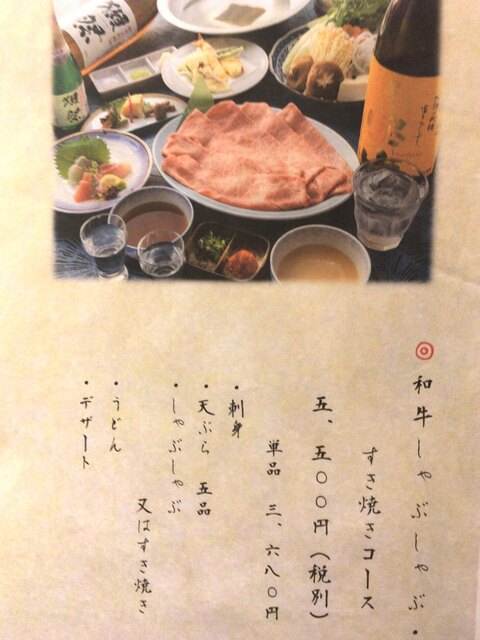 ◎和牛しゃぶしゃぶ・
すき焼きコース
五、五〇〇円(税別)
単品 三、六八〇円
・刺身
・天ぷら 五品
・しゃぶしゃぶ
又はすき焼き
・うどん
・デザート
獺祭
獺祭